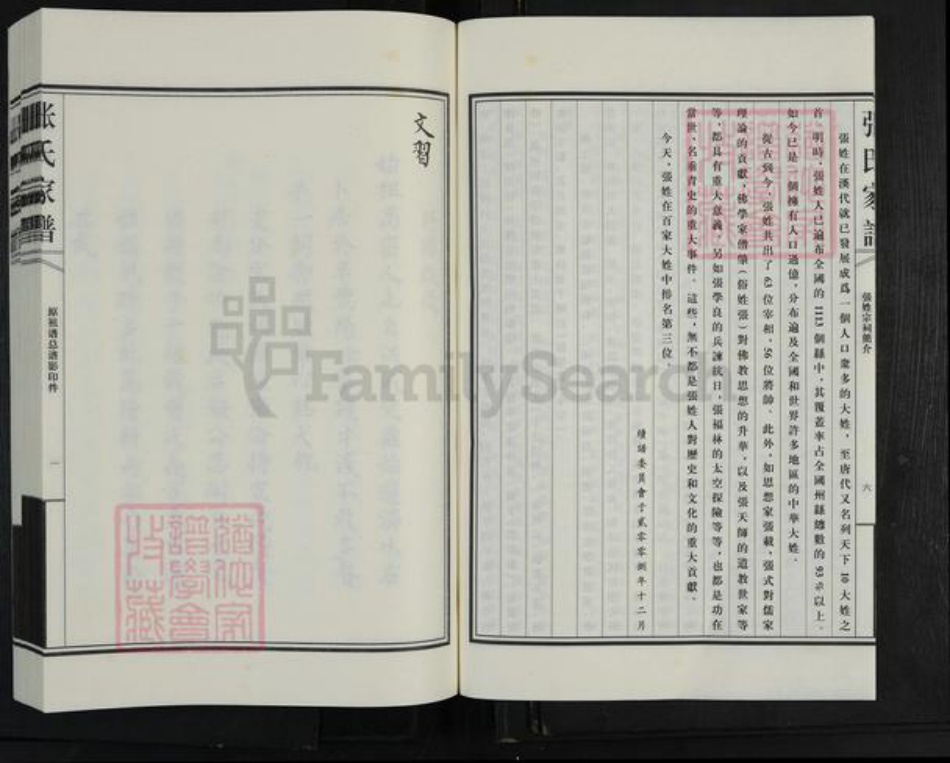 張氏家譜
張姓宗祠簡介
六
張姓在漢代就已發展成爲一個人口衆多的大姓，至唐代又名列天下10大姓之
首，明時，張姓人已遍布全國的1113個縣中，其覆蓋率占全國州縣總數的93%以上。
如今已是一個擁有人口過億，分布遍及全國和世界許多地區的中華大姓。
從古到今，張姓共出了63位宰相，56位將帥、此外，如思想家張載，張式對儒家
理論的貢獻，佛學家僧肇（俗姓張）對佛教思想的升華，以及張天師的道教世家等
等，都具有重大意義，另如張學良的兵諫抗日，張福林的太空探險等等，也都是功在
當世、名垂青史的重大事件。這些，無不都是張姓人對歷史和文化的重大貢獻。
今天，張姓在百家大姓中排名第三位。
續譜委員會于貳零零捌年十二月
文習
张氏家譜
原祖谱总谱影印件
一
FamilySearch